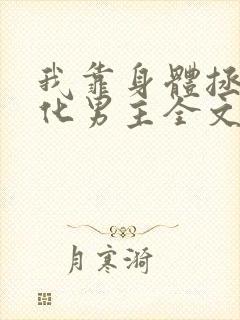 我靠身體拯
化男主全文
月寒漪